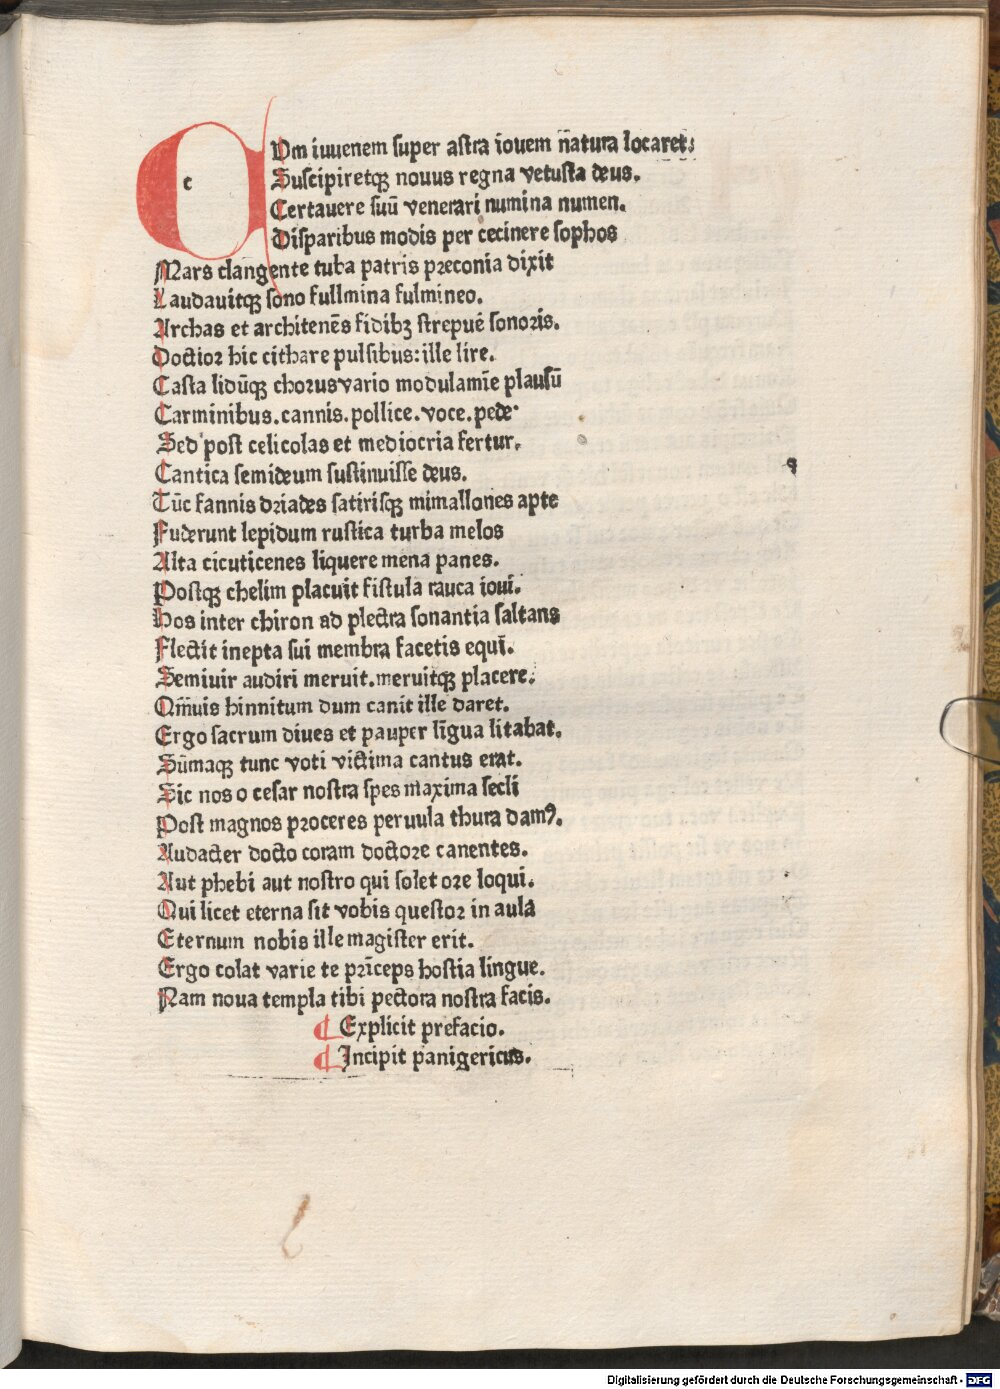 CUm iuuenem super astra iouem n̄atura locaret;
Suscipiretqꝫ nouus regna vetusta deus.
Certauere suū venerari numina numen.
Disparibus modis per cecinere sophos
Mars clangente tuba patris preconia dixit
Laudauitqꝫ sono fullmina fulmineo.
Archas et architenēs fidibꝫ strepuē sonoris.
Doctior hic cithare pulsibus: ille lire.
Casta lidūqꝫ chorus vario modulamīe plausū
Carminibus. cannis. pollice. voce. pede
Sed post celicolas et mediocria fertur.
Cantica semideum sustinuisse deus.
Tūc fannis driades satirisqꝫ mimallones apte
Fuderunt lepidum rustica turba melos
Alta cicuticenes liquere mena panes.
Postqꝫ chelim placuit fistula rauca ioui.
Hos inter chiron ad plectra sonantia saltans
Flectit inepta sui membra facetis equi.
Semiuir audiri meruit. meruitqꝫ placere.
Qm̄uis hinnitum dum canit ille daret.
Ergo sacrum diues et pauper līgua litabat.
Sūmaqꝫ tunc voti victima cantus erat.
Sic nos o cesar nostra spes maxima secli
Post magnos proceres peruula thura damꝰ.
Audacter docto coram doctore canentes.
Aut phebi aut nostro qui solet ore loqui.
Qui licet eterna sit vobis questor in aula
Eternum nobis ille magister erit.
Ergo colat varie te prīceps hostia lingue.
Nam noua templa tibi pectora nostra facis.
¶ Explicit prefacio.
¶ Incipit panigericus.
Digitalisierung gefördert durch die Deutsche Forschungsgemeinschaft - DFG